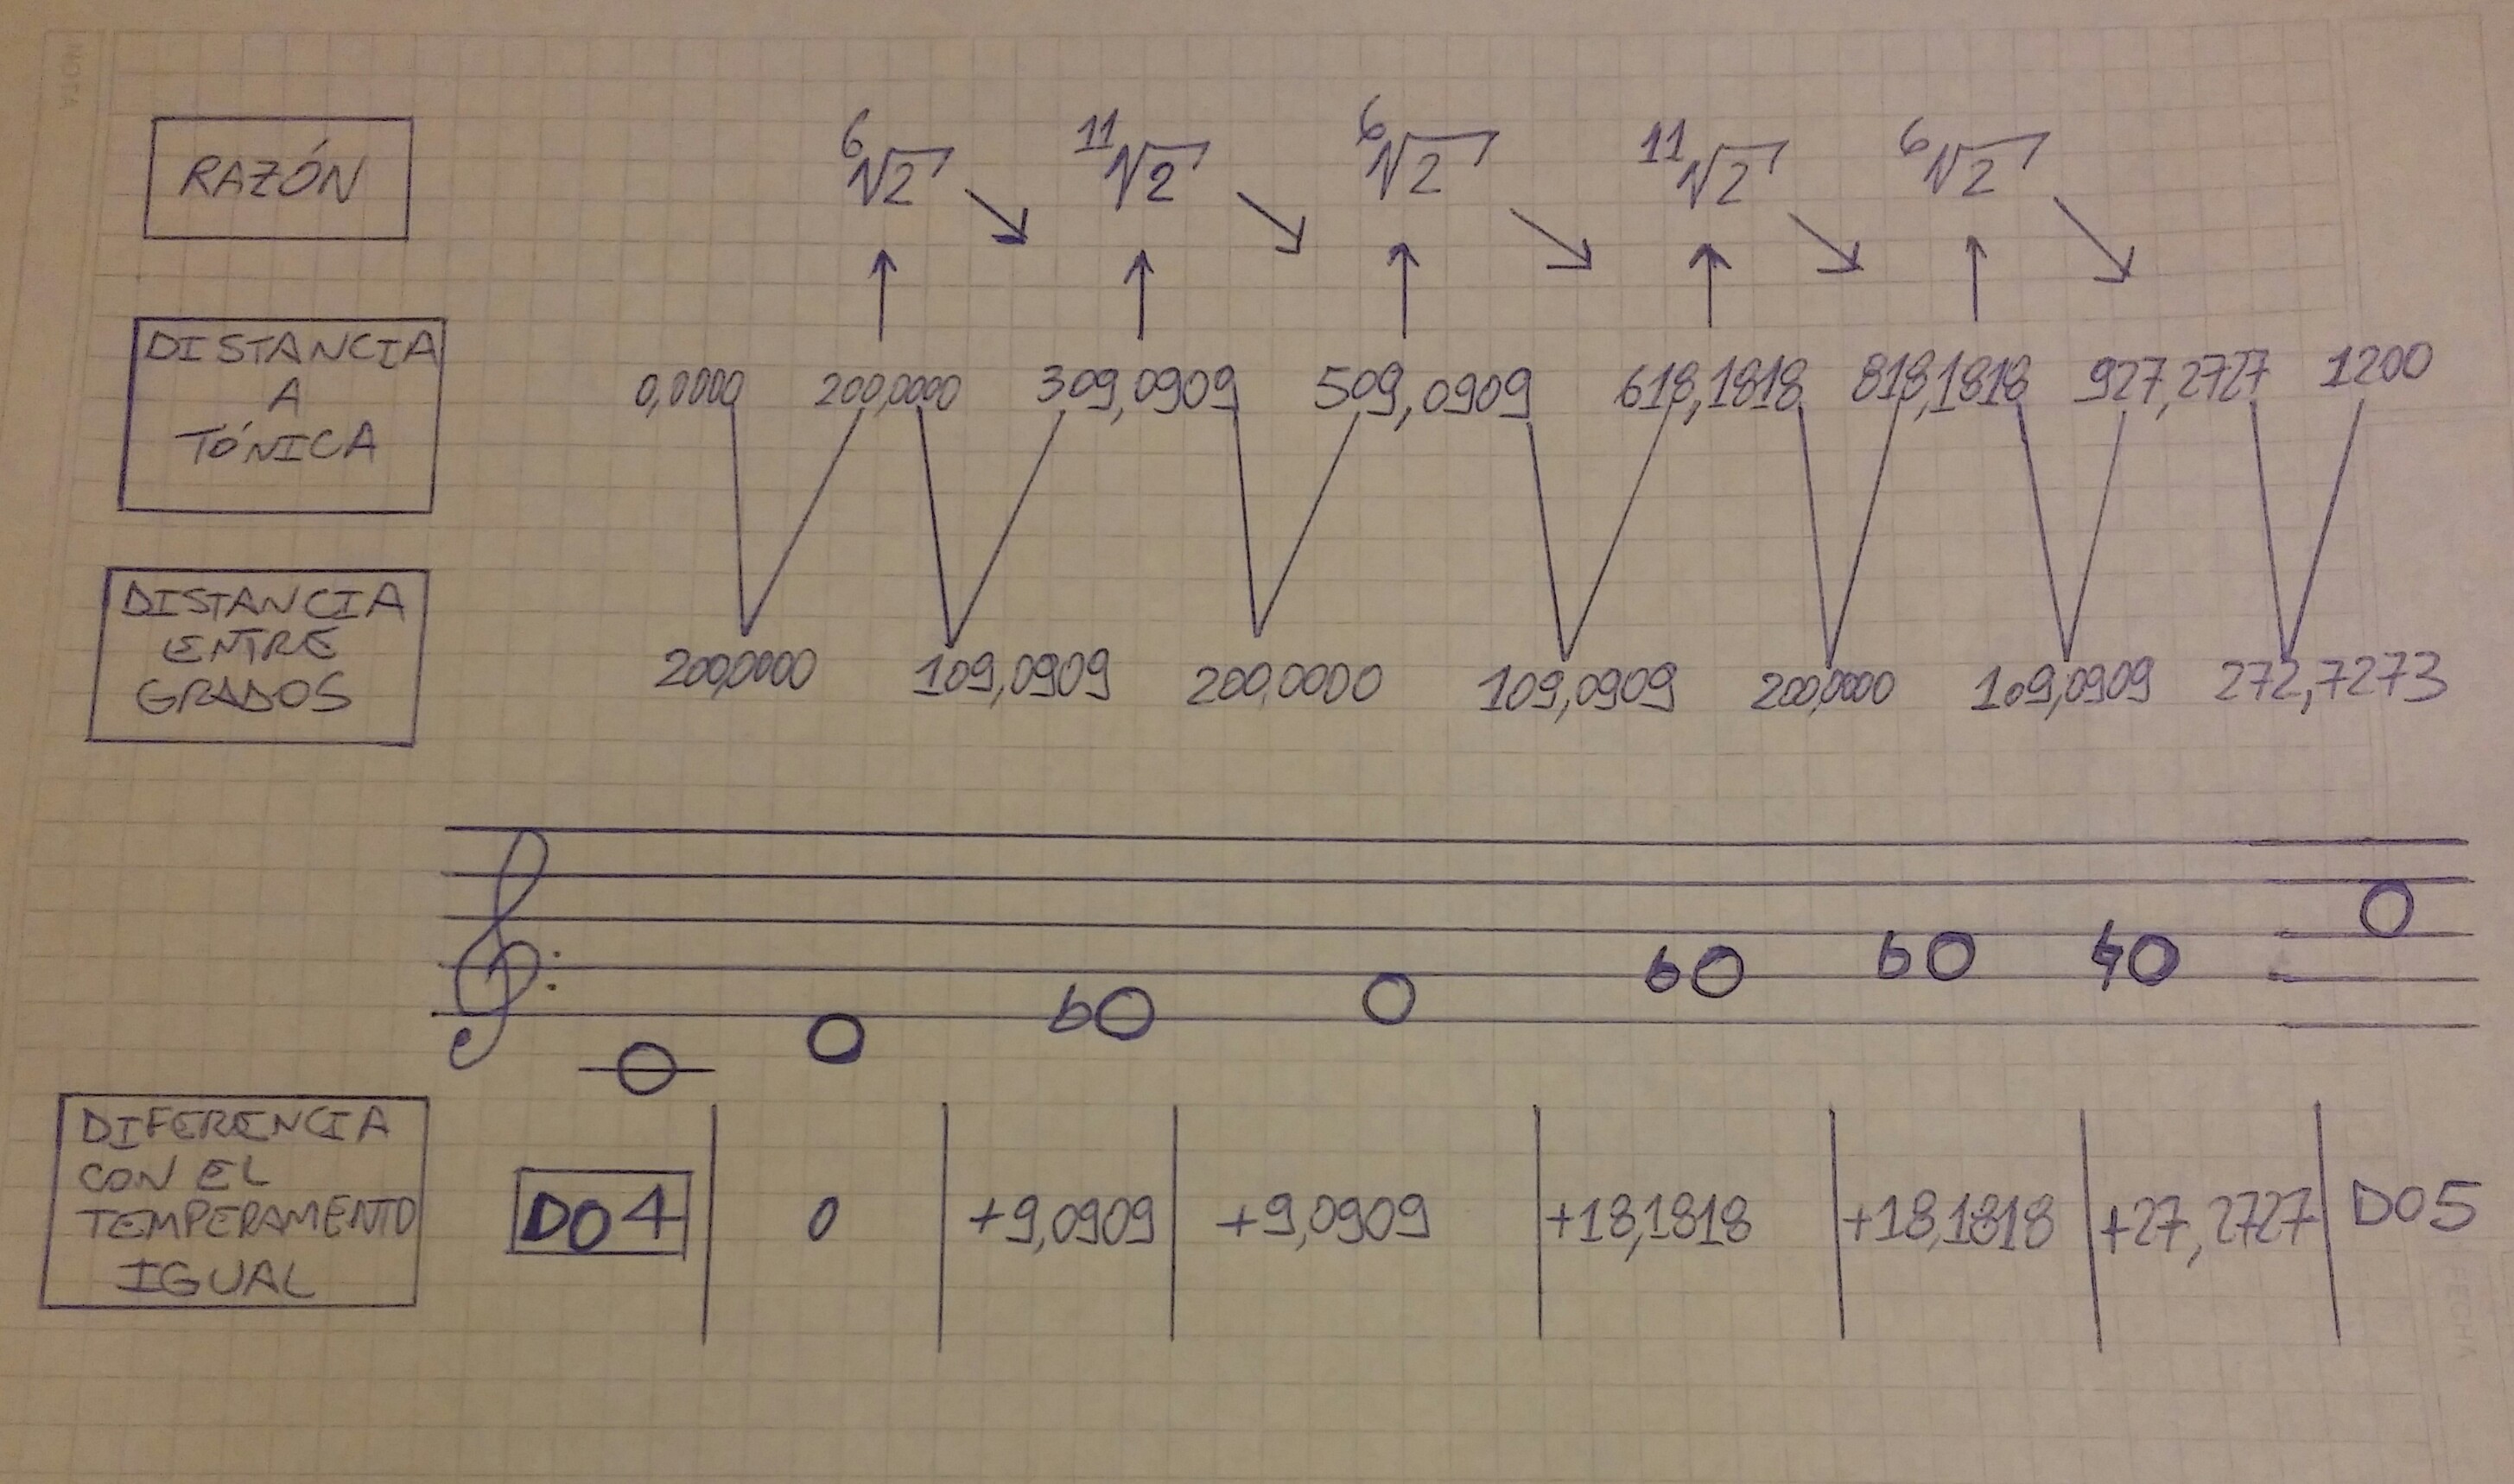 NOTA
RAZÓN
6√2 11√2 6√2 11√2 6√2
DISTANCIA
A
TÓNICA
0,0000 200,0000 309,0909 509,0909 618,1818 818,1818 927,2727 1200
DISTANCIA
ENTRE
GRADOS
200,0000 109,0909 200,0000 109,0909 200,0000 109,0909 272,7273
DIFERENCIA
CON EL
TEMPERAMENTO
IGUAL
DO4 0 +9,0909 +9,0909 +18,1818 +18,1818 +27,2727 DO5
FECHA